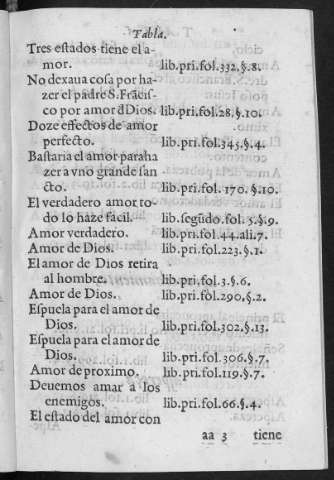 Tabla.
Tres estados tiene el a-
mor. lib.pri.fol.332.§.8.
No dexaua cosa por ha-
zer el padre S. Frãcis-
co por amor dDios. lib.pri.fol.28.§.10.
Doze effectos de amor
perfecto. lib.pri.fol.345.§.4.
Bastaria el amor paraha
zer a vno grande san
cto. lib.pri.fol. 170. §.10.
El verdadero amor to-
do lo haze facil. lib.segũdo.fol. 5.§.9.
Amor verdadero. lib.pri.fol.44.ali.7.
Amor de Dios. lib.pri.fol.223.§.1.
El amor de Dios retira
al hombre. lib.pri.fol.3.§.6.
Amor de Dios. lib.pri.fol.290.§.2.
Espuela para el amor de
Dios. lib.pri.fol.302.§.13.
Espuela para el amor de
Dios. lib.pri.fol.306.§.7.
Amor de proximo. lib.pri.fol.119.§.7.
Deuemos amar a los
enemigos. lib.pri.fol.66.§.4.
El estado del amor con
aa 3 tiene